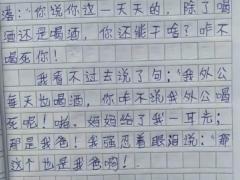 道：“你说你这一天天的，除了喝
酒还是喝酒，你还能干啥？咋不
喝死你！
我看不过去说了句：“我外公
每天也喝酒，你咋不说我外公喝
死呢！啪，妈妈给了我一耳光：
那是我爸！我强忍着眼泪说：“那
这个也是我爸啊！